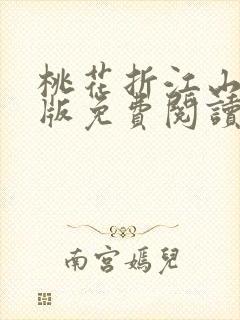 桃花折江山
版免費閱讀
南宮嫣兒